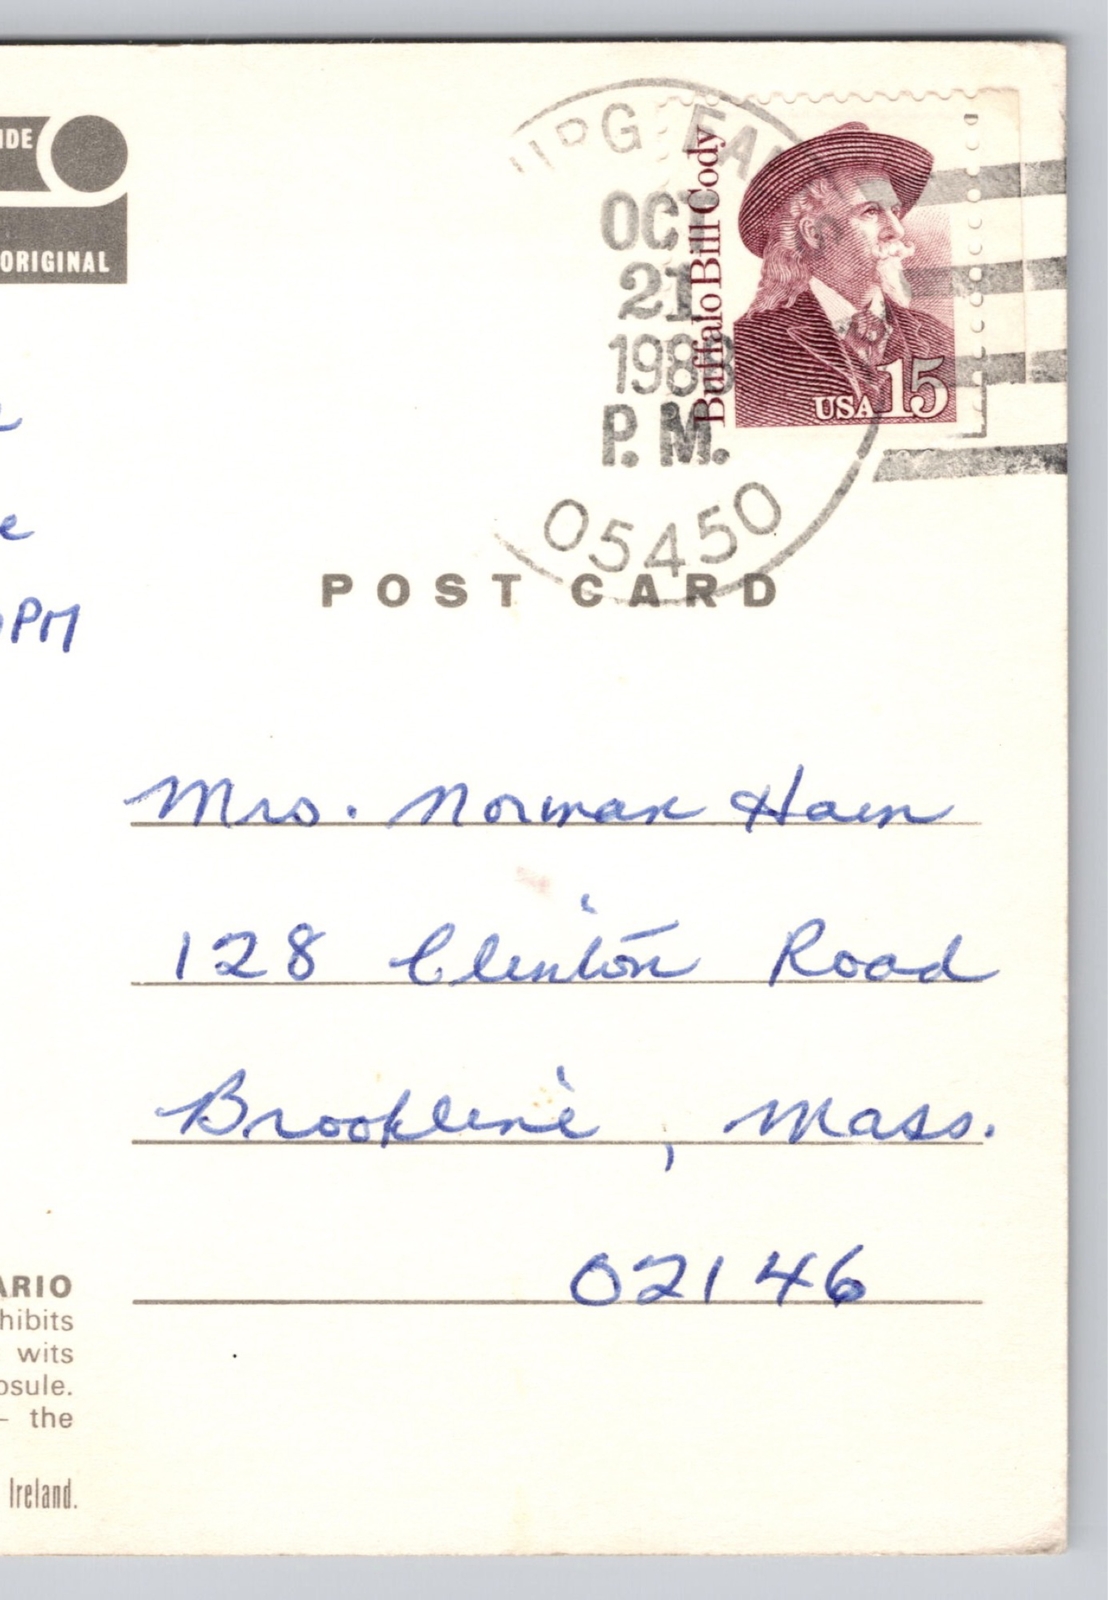 IDE
ORIGINAL
OCT
21
1988
P. M.
05450
Buffalo Bill Cody
USA 15
POST CARD
PM
Mrs. Norman Haen
128 Clinton Road
Brookline, Mass.
02146
ARIO
hibits
wits
osule.
– the
Ireland.